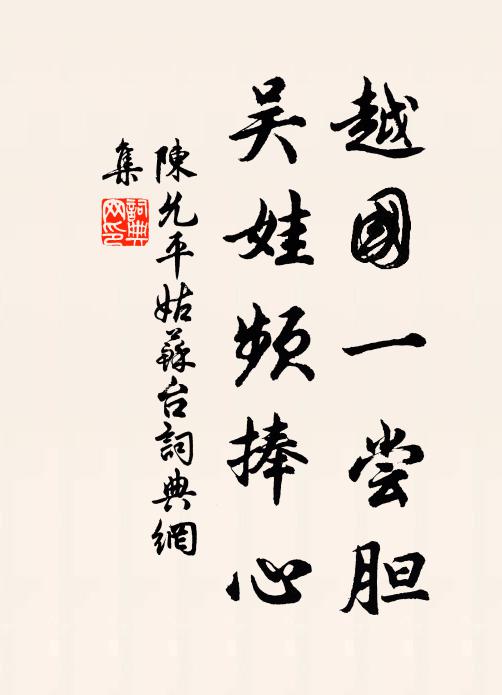 越國一尝胆
吴娃频捧心
陳允平姑蘇台詞典網
集
詞典网印